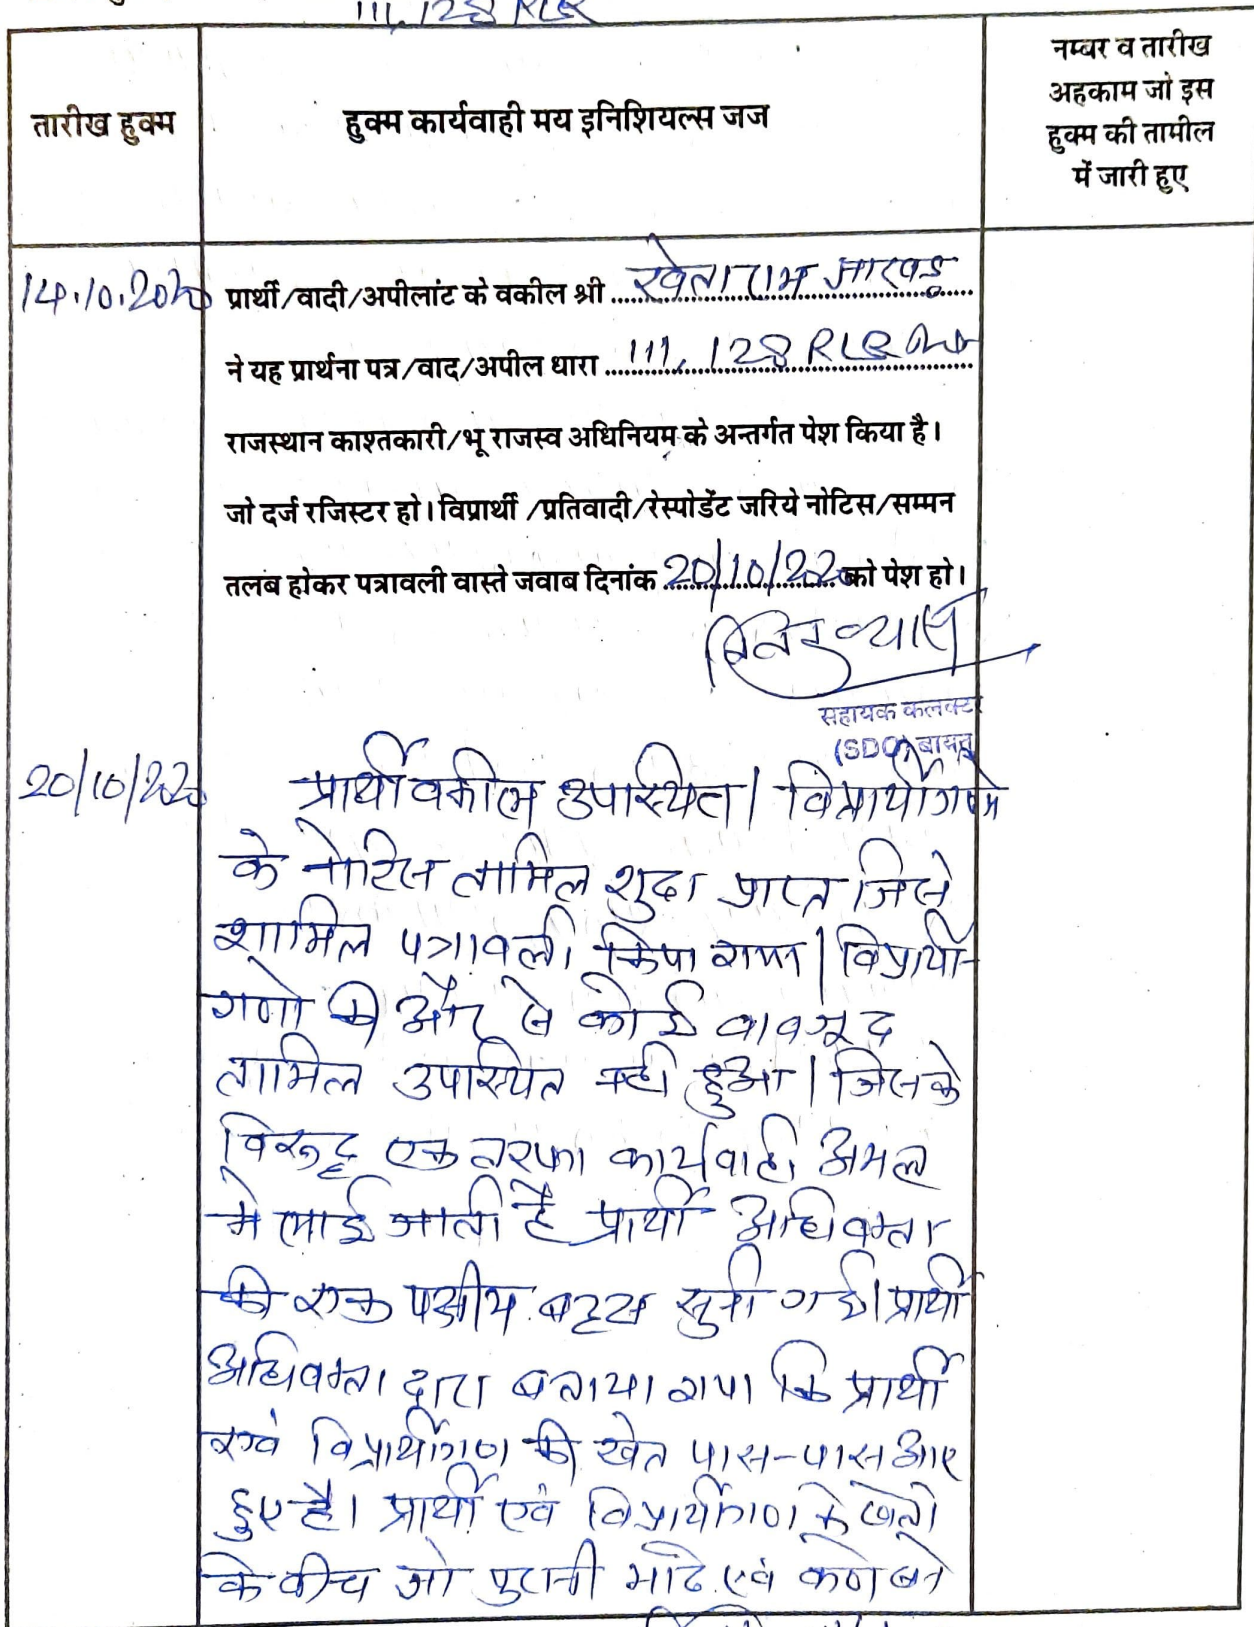 111, 128 RLR
तारीख हुक्म
हुक्म कार्यवाही मय इनिशियल्स जज
नम्बर व तारीख
अहकाम जो इस
हुक्म की तामील
में जारी हुए
14.10.2020 प्रार्थी/वादी/अपीलांट के वकील श्री खेताराम जाखड़
ने यह प्रार्थना पत्र/वाद/अपील धारा 111, 128 RLR
राजस्थान काश्तकारी/भू राजस्व अधिनियम के अन्तर्गत पेश किया है।
जो दर्ज रजिस्टर हो। विप्रार्थी /प्रतिवादी/रेस्पोडेंट जरिये नोटिस/सम्मन
तलब होकर पत्रावली वास्ते जवाब दिनांक 20/10/2020 को पेश हो।
सहायक कलक्टर
(SDO) बायतु
20/10/2020 प्रार्थी वकील उपस्थित। विप्रार्थीगण
के नोटिस तामिल शुदा प्राप्त जिसे
शामिल पत्रावली किया गया। विप्रार्थी-
गणो की और से कोई बावजूद
तामिल उपस्थित नही हुआ। जिसके
विरूद्ध एक तरफा कार्यवाही अमल
मे लाई जाती है प्रार्थी अधिवक्ता
की एक पक्षीय बहस सुनी गई। प्रार्थी
अधिवक्ता द्वारा बताया गया कि प्रार्थी
एवं विप्रार्थीगण की खेत पास-पास आए
हुए है। प्रार्थी एवं विप्रार्थीगण के खेतो
के बीच जो पुरानी माढे एवं कणे बने